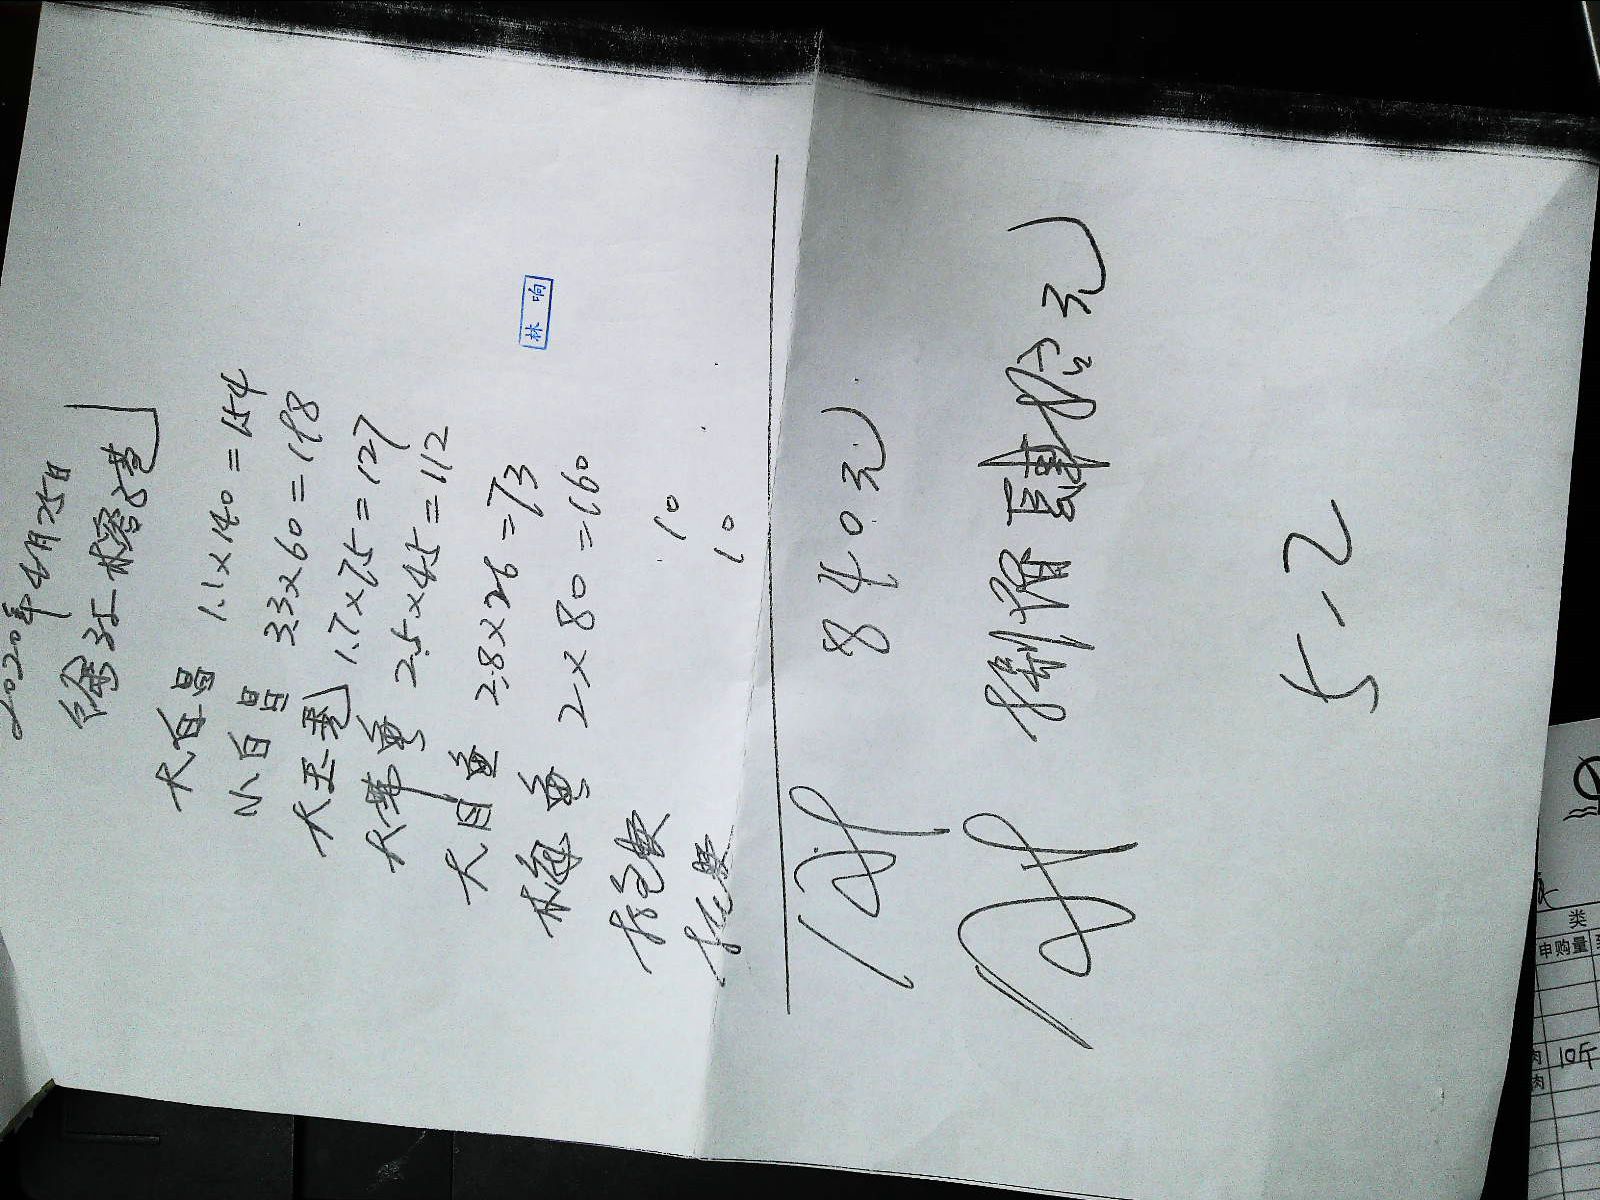 2020年4月25日
大白昌 1.1×140=154
小白昌 3.3×60=198
大玉秃 1.7×75=127
大草鱼 2.5×45=112
大目鱼 2.8×26=73
梅鱼 2×80=160
10
10
840元
捌佰肆拾元
5.2
林响
类
申购量
肉 10斤
肉